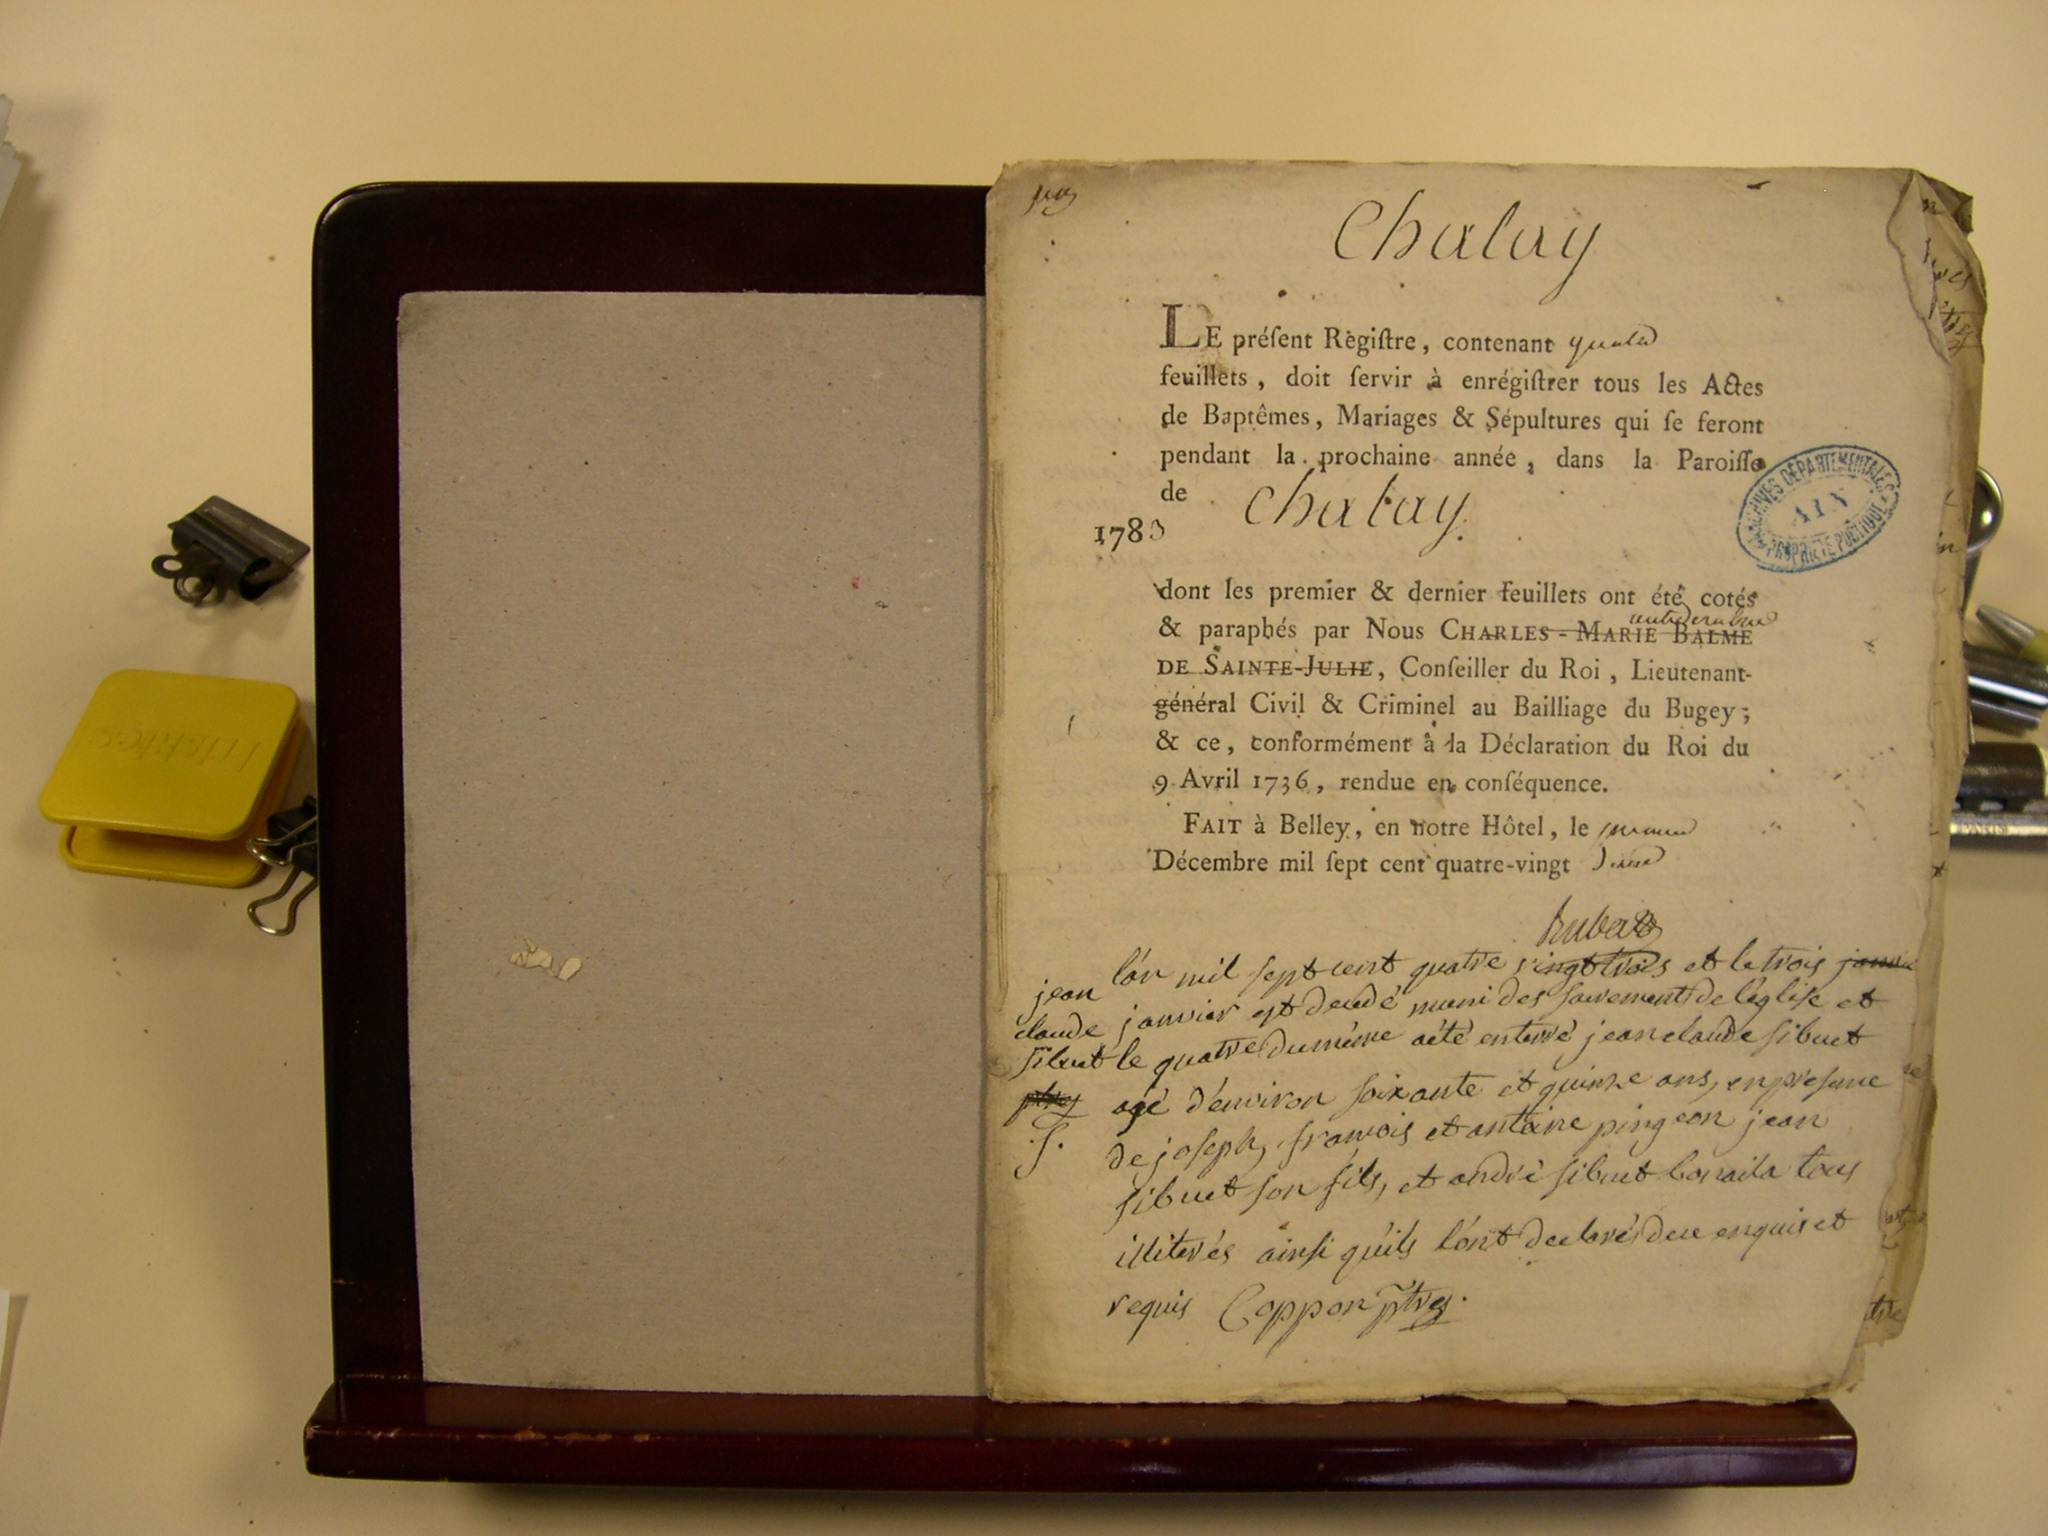 Chalay
LE préſent Regiſtre, contenant quatre
feuillets, doit ſervir à enrégiſtrer tous les Actes
de Baptêmes, Mariages & Sépultures qui ſe feront
pendant la prochaine année, dans la Paroiſſe
de Chalay.
1783
ARCHIVES DÉPARTEMENTALES
AIN
PROPRIÉTÉ PUBLIQUE
dont les premier & dernier feuillets ont été cotés
& paraphés par Nous CHARLES-MARIE BALME
DE SAINTE-JULIE, Conſeiller du Roi, Lieutenant-
général Civil & Criminel au Bailliage du Bugey;
& ce, conformément à la Déclaration du Roi du
9 Avril 1736, rendue en conſéquence.
FAIT à Belley, en notre Hôtel, le premier
Décembre mil ſept cent quatre-vingt
jean
claude
sibuet
S.
l'an mil sept cent quatre vingt trois et le trois
janvier est decedé muni des sacrements de l'église et
le quatre du même a été enterré jean claude sibuet
agé d'environ soixante et quinze ans, en presence
de joseph, francois et antoine pingeon jean
sibuet son fils, et andré sibuet tous
illiterés ainsi qu'ils l'ont declaré de ce enquis et
requis Coppon ptre.